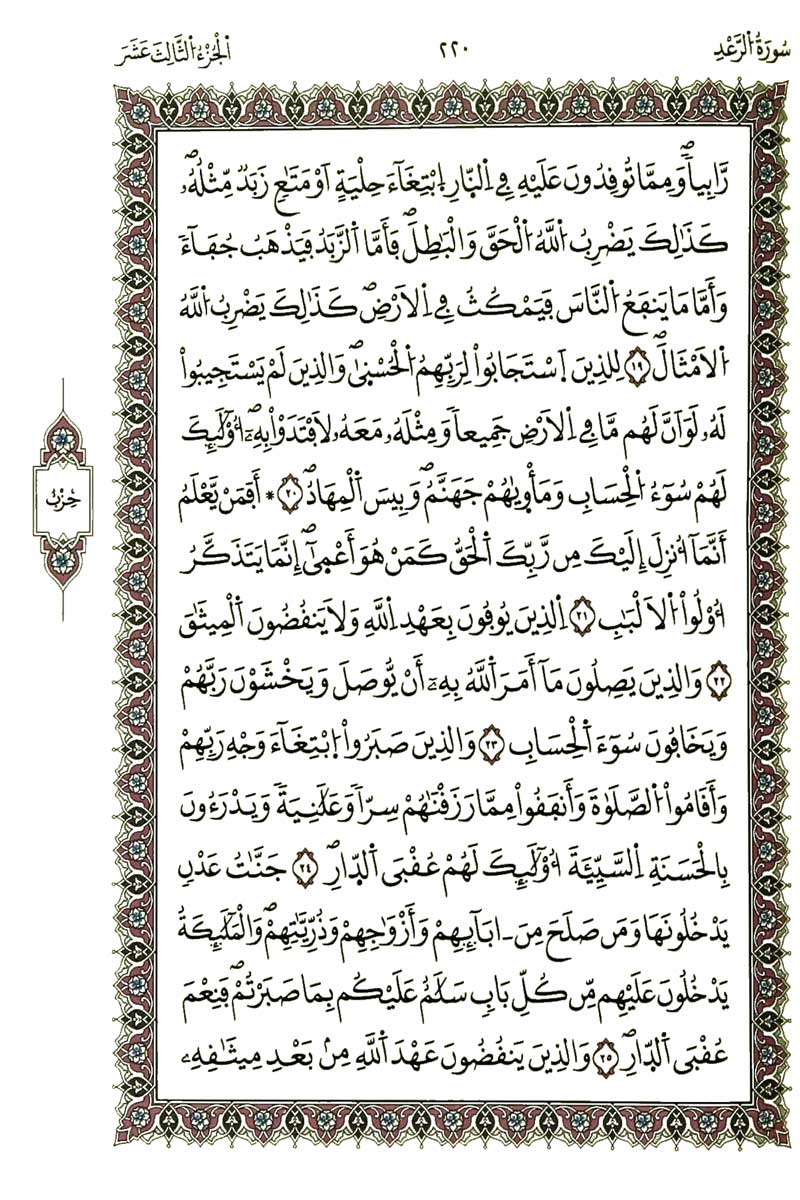 سُورَةُ الرَّعْدِ
٢٢٠
اَلْجُزْءُ الثَّالِثَ عَشَرَ
رَّابِياٗۖ وَمِمَّا تُوقِدُونَ عَلَيْهِ فِے اِ۬لنَّارِ اِ۪بْتِغَآءَ حِلْيَةٍ اَوْ مَتَٰعٖ زَبَدٞ مِّثْلُهُۥۖ
كَذَٰلِكَ يَضْرِبُ اُ۬للَّهُ اُ۬لْحَقَّ وَالْبَٰطِلَۖ فَأَمَّا اَ۬لزَّبَدُ فَيَذْهَبُ جُفَآءٗ
وَأَمَّا مَا يَنفَعُ اُ۬لنَّاسَ فَيَمْكُثُ فِے اِ۬لَارْضِۖ كَذَٰلِكَ يَضْرِبُ اُ۬للَّهُ
اُ۬لَامْثَالَۖ ١٩ لِلذِينَ اَ۪سْتَجَابُواْ لِرَبِّهِمُ اُ۬لْحُسْنَىٰۖ وَالذِينَ لَمْ يَسْتَجِيبُواْ
لَهُۥ لَوَ اَنَّ لَهُم مَّا فِے اِ۬لَارْضِ جَمِيعاٗ وَمِثْلَهُۥ مَعَهُۥ لَافْتَدَوْاْ بِهِۦٓۖ أُوْلَٰٓئِكَ
لَهُمْ سُوٓءُ اُ۬لْحِسَابِ وَمَأْو۪ىٰهُمْ جَهَنَّمُۖ وَبِيسَ اَ۬لْمِهَادُۖ ٢٠ * أَفَمَنْ يَّعْلَمُ
أَنَّمَآ أُنزِلَ إِلَيْكَ مِن رَّبِّكَ اَ۬لْحَقُّ كَمَنْ هُوَ أَعْم۪ىٰٓۖ إِنَّمَا يَتَذَكَّرُ
أُوْلُواْ اُ۬لَالْبَٰبِ ٢١ اِ۬لذِينَ يُوفُونَ بِعَهْدِ اِ۬للَّهِ وَلَا يَنقُضُونَ اَ۬لْمِيثَٰقَ
٢٢ وَالذِينَ يَصِلُونَ مَآ أَمَرَ اَ۬للَّهُ بِهِۦٓ أَنْ يُّوصَلَ وَيَخْشَوْنَ رَبَّهُمْ
وَيَخَافُونَ سُوٓءَ اَ۬لْحِسَابِ ٢٣ وَالذِينَ صَبَرُواْ اُ۪بْتِغَآءَ وَجْهِ رَبِّهِمْ
وَأَقَامُواْ اُ۬لصَّلَوٰةَ وَأَنفَقُواْ مِمَّا رَزَقْنَٰهُمْ سِرّاٗ وَعَلَٰنِيَةٗ وَيَدْرَءُونَ
بِالْحَسَنَةِ اِ۬لسَّيِّئَةَ أُوْلَٰٓئِكَ لَهُمْ عُقْبَى اَ۬لدّ۪ارِۖ ٢٤ جَنَّٰتُ عَدْنٖ
يَدْخُلُونَهَا وَمَن صَلَحَ مِنَ اٰبَآئِهِمْ وَأَزْوَٰجِهِمْ وَذُرِّيَّٰتِهِمْۖ وَالْمَلَٰٓئِكَةُ
يَدْخُلُونَ عَلَيْهِم مِّن كُلِّ بَابٖ سَلَٰمٌ عَلَيْكُم بِمَا صَبَرْتُمْۖ فَنِعْمَ
عُقْبَى اَ۬لدّ۪ارِۖ ٢٥ وَالذِينَ يَنقُضُونَ عَهْدَ اَ۬للَّهِ مِنۢ بَعْدِ مِيثَٰقِهِۦ
حِزْبٌ